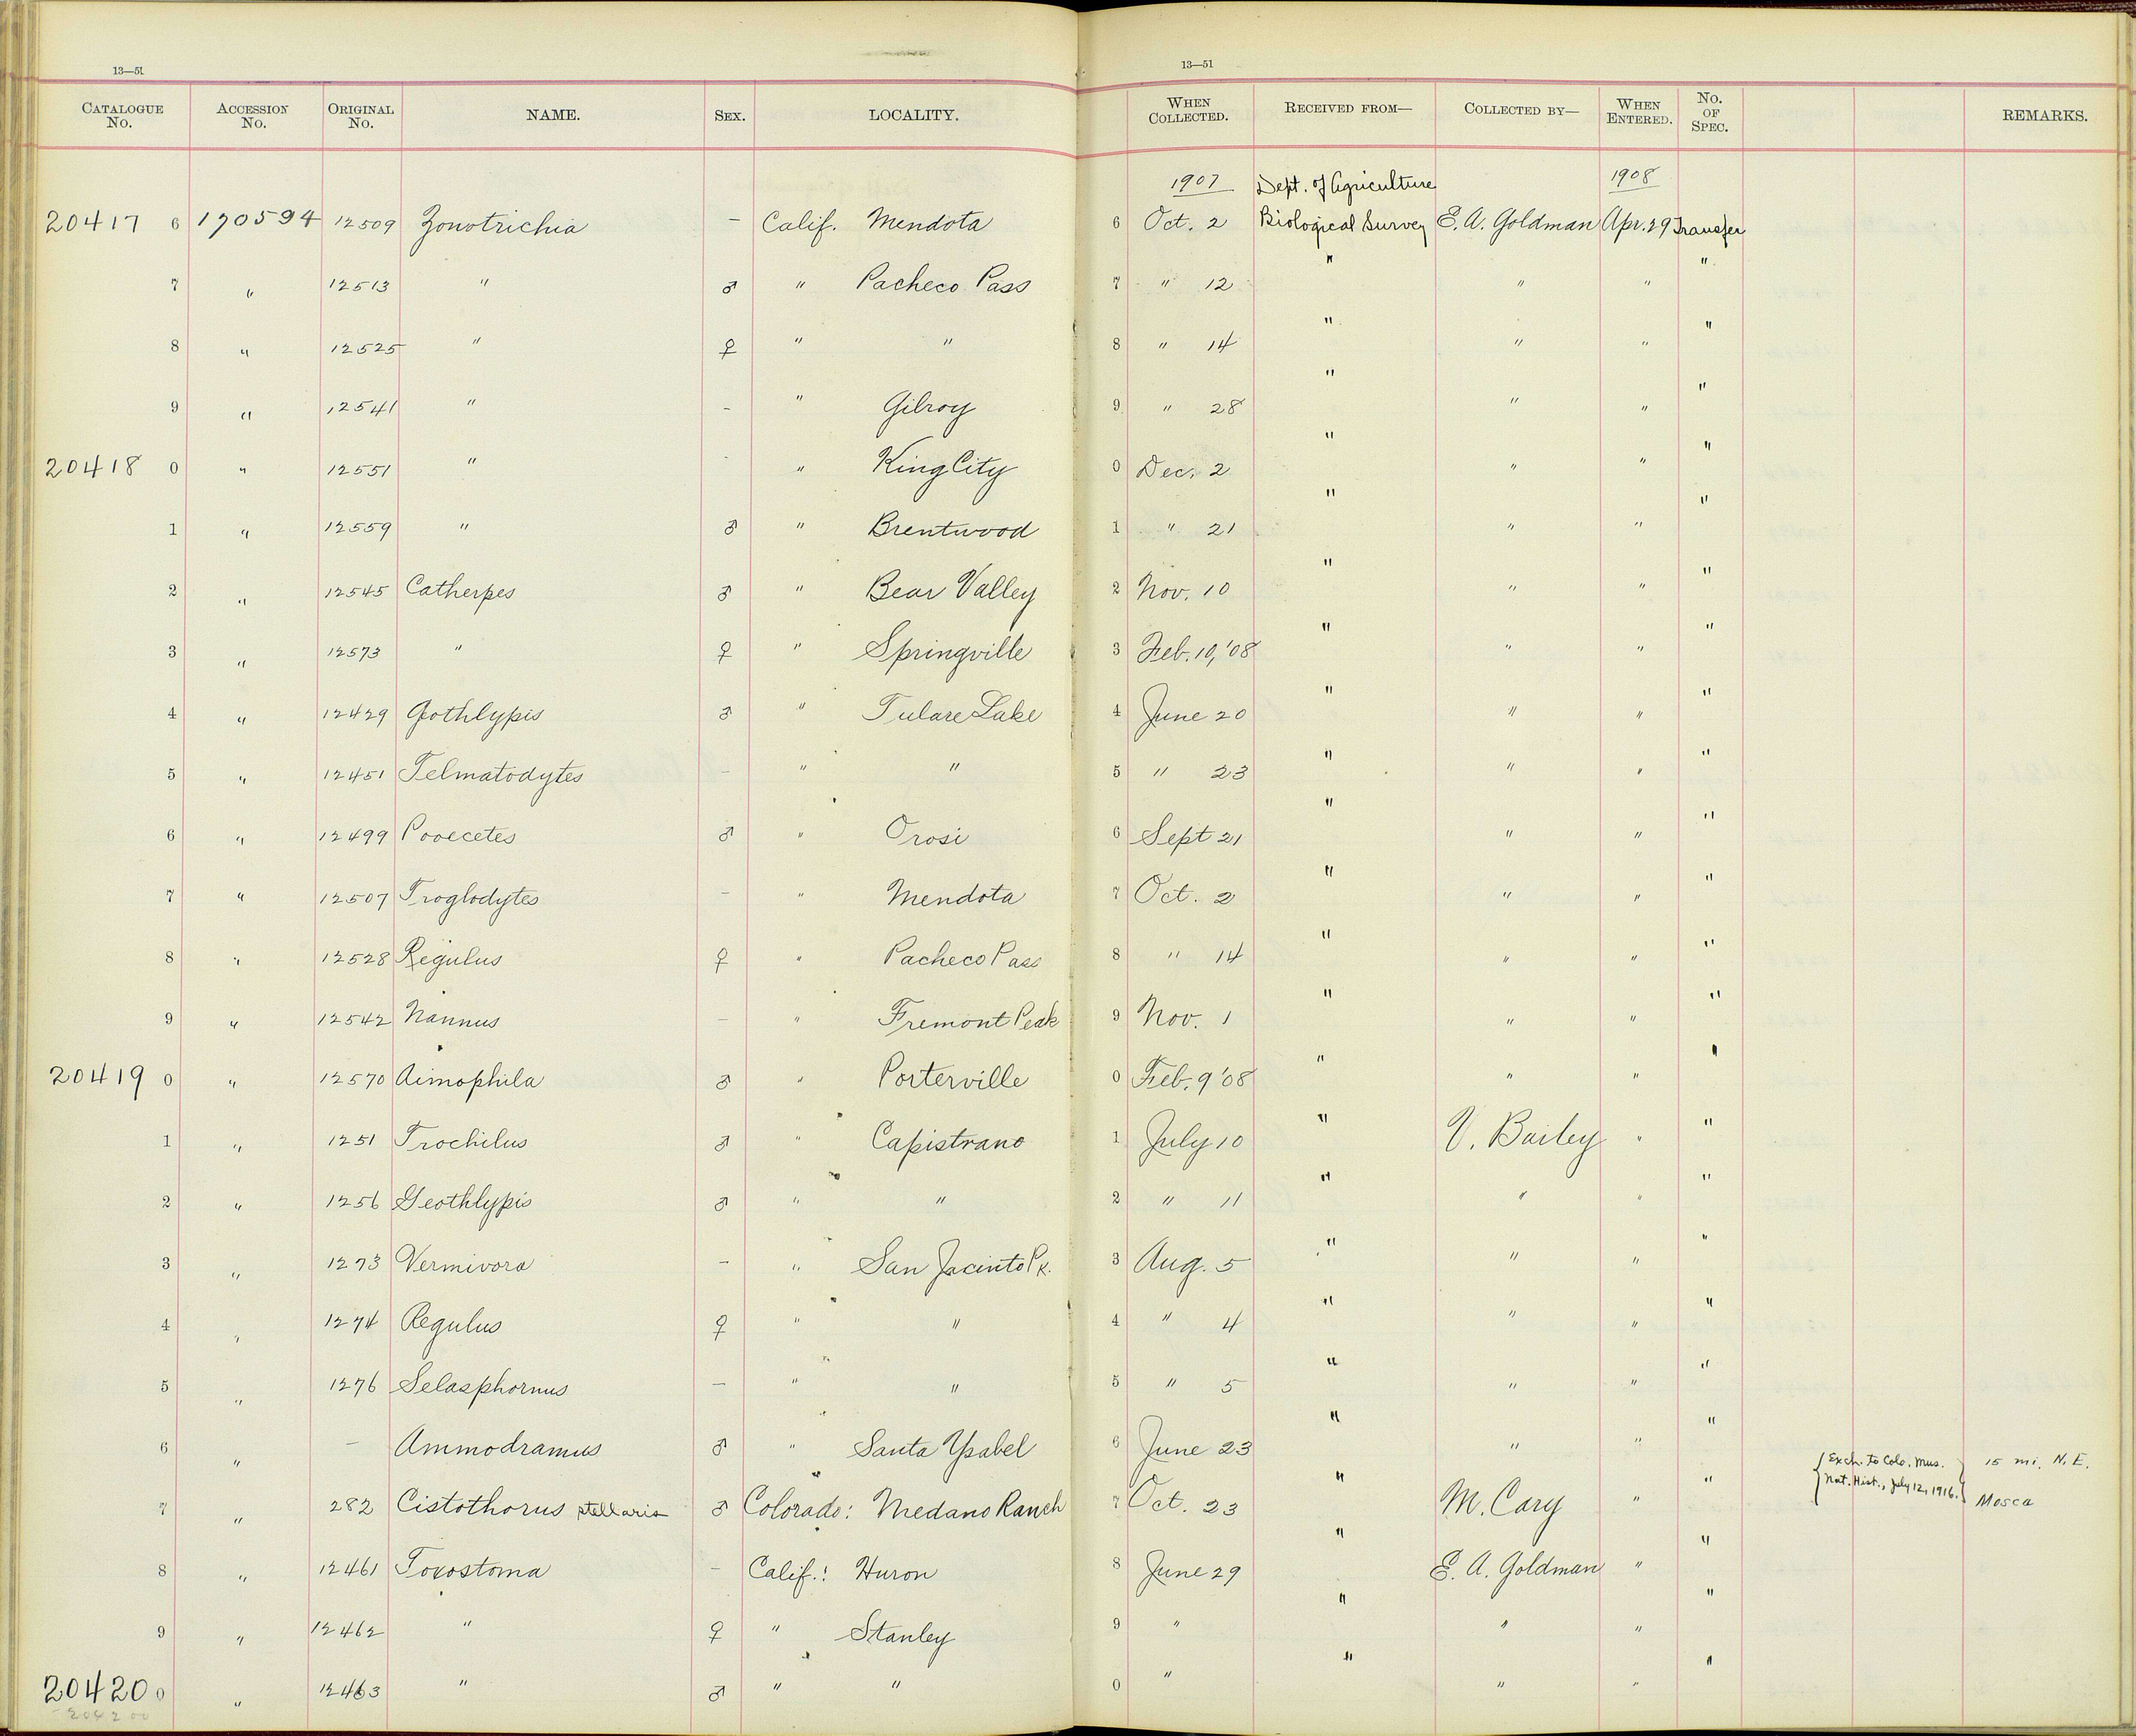 13—51
13—51
CATALOGUE No. ACCESSION No. ORIGINAL No. NAME. SEX. LOCALITY. WHEN COLLECTED. RECEIVED FROM— COLLECTED BY— WHEN ENTERED. No. OF SPEC. REMARKS.
1907 Dept. of Agriculture 1908
20417 6 190594 12509 Zonotrichia – Calif. Mendota 6 Oct. 2 Biological Survey E. A. Goldman Apr. 29 Transfer
7 " 12513 " ♂ " Pacheco Pass 7 " 12 " " " "
8 " 12525 " ♀ " " 8 " 14 " " " "
9 " 12541 " – " Gilroy 9 " 28 " " " "
20418 0 " 12551 " - " King City 0 Dec. 2 " " " "
1 " 12559 " ♂ " Brentwood 1 " 21 " " " "
2 " 12545 Catherpes ♂ " Bear Valley 2 Nov. 10 " " " "
3 " 12573 " ♀ " Springville 3 Feb. 10, '08 " " " "
4 " 12429 Gothlypis ♂ " Tulare Lake 4 June 20 " " " "
5 " 12451 Telmatodytes – " " 5 " 23 " " " "
6 " 12499 Pooecetes ♂ " Orosi 6 Sept 21 " " " "
7 " 12507 Troglodytes – " Mendota 7 Oct. 2 " " " "
8 " 12528 Regulus ♀ " Pacheco Pass 8 " 14 " " " "
9 " 12542 Nannus – " Fremont Peak 9 Nov. 1 " " " "
20419 0 " 12570 Aimophila ♂ " Porterville 0 Feb. 9 '08 " " " "
1 " 1251 Trochilus ♂ " Capistrano 1 July 10 " V. Bailey " "
2 " 1256 Geothlypis ♂ " " 2 " 11 " " " "
3 " 1273 Vermivora – " San Jacinto Pk. 3 Aug. 5 " " " "
4 " 1274 Regulus ♀ " " 4 " 4 " " " "
5 " 1276 Selasphorus – " " 5 " 5 " " " "
6 " – Ammodramus ♂ " Santa Ysabel 6 June 23 " " " "
Exch. to Colo. Mus. 15 mi. N. E.
Nat. Hist., July 12, 1916. Mosca
7 " 282 Cistothorus stellaris ♂ Colorado: Medano Ranch 7 Oct. 23 " M. Cary " "
8 " 12461 Toxostoma – Calif.: Huron 8 June 29 " E. A. Goldman " "
9 " 12462 " ♀ " Stanley 9 " " " " "
20420 0 " 12463 " ♂ " " 0 " " " " "
204200